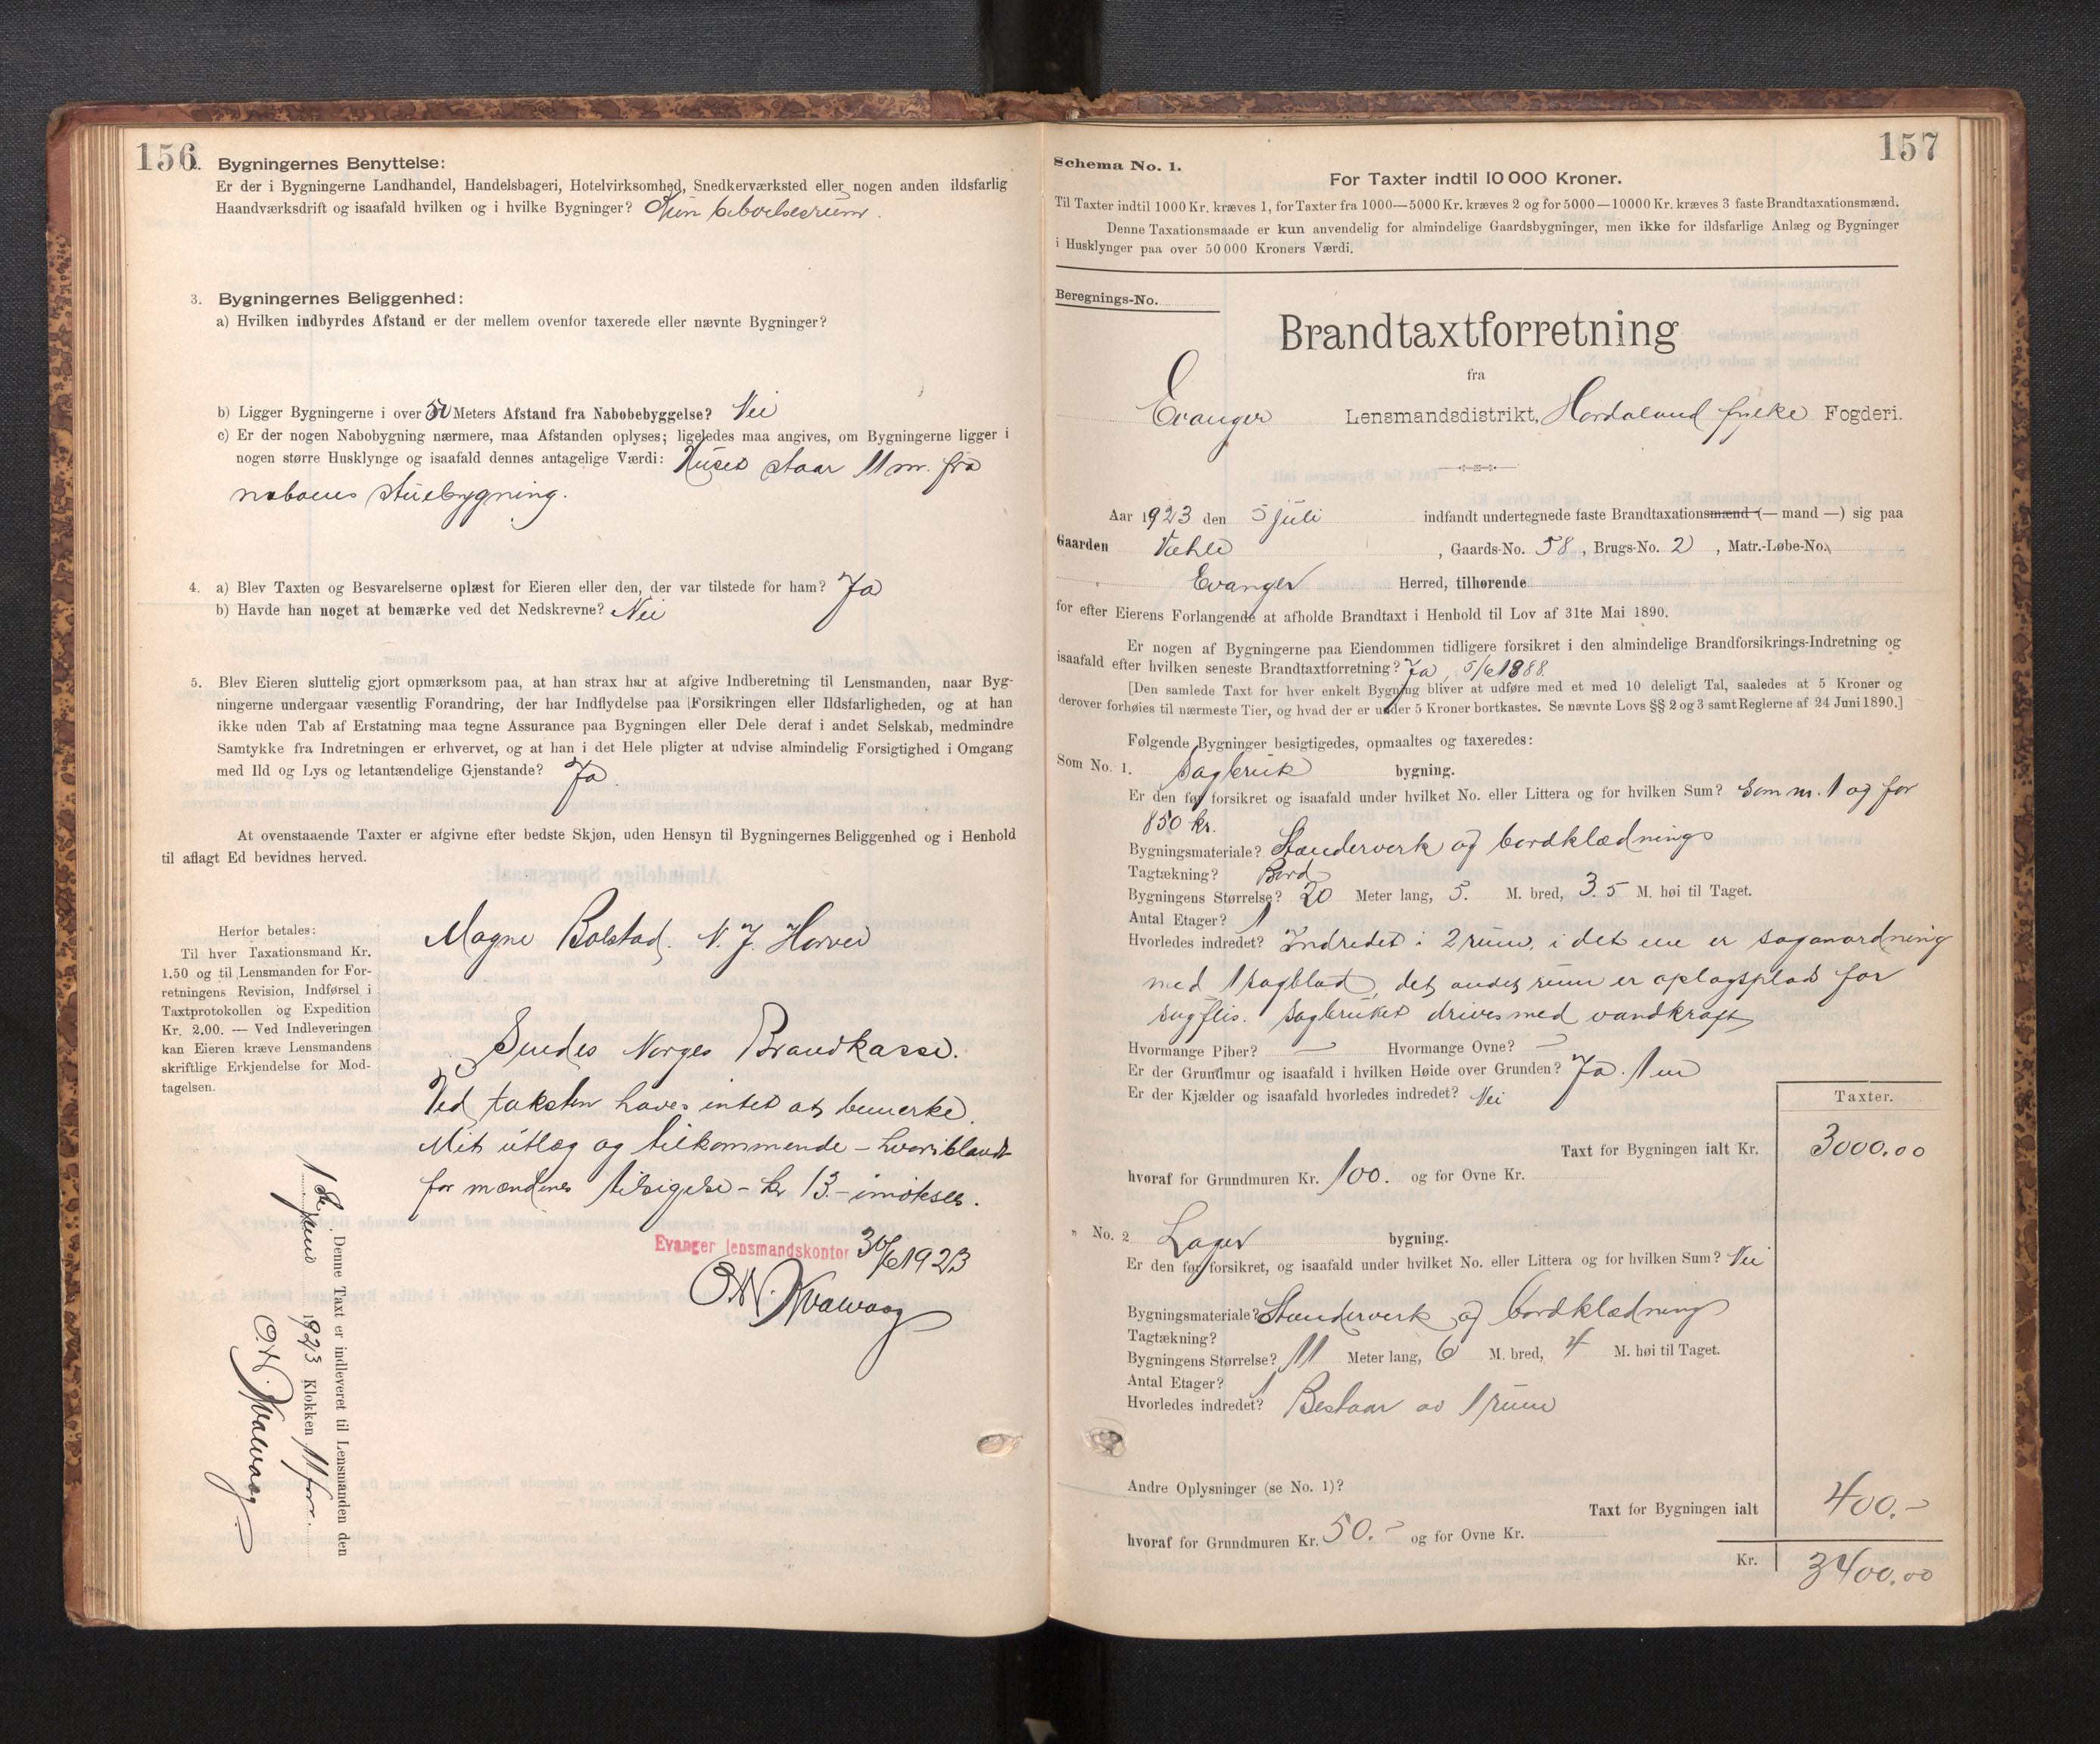 156
2. Bygningernes Benyttelse:
Er der i Bygningerne Landhandel, Handelsbageri, Hotelvirksomhed, Snedkerværksted eller nogen anden ildsfarlig
Haandværksdrift og isaafald hvilken og i hvilke Bygninger? Kun beboelsesrum.
3. Bygningernes Beliggenhed:
a) Hvilken indbyrdes Afstand er der mellem ovenfor taxerede eller nævnte Bygninger?
b) Ligger Bygningerne i over 50 Meters Afstand fra Nabobebyggelse? Nei
c) Er der nogen Nabobygning nærmere, maa Afstanden oplyses; ligeledes maa angives, om Bygningerne ligger i
nogen større Husklynge og isaafald dennes antagelige Værdi: Huset staar 11 m. fra
naboens stuebygning.
4. a) Blev Taxten og Besvarelserne oplæst for Eieren eller den, der var tilstede for ham? Ja
b) Havde han noget at bemærke ved det Nedskrevne? Nei
5. Blev Eieren sluttelig gjort opmærksom paa, at han strax har at afgive Indberetning til Lensmanden, naar Byg-
ningerne undergaar væsentlig Forandring, der har Indflydelse paa Forsikringen eller Ildsfarligheden, og at han
ikke uden Tab af Erstatning maa tegne Assurance paa Bygningen eller Dele deraf i andet Selskab, medmindre
Samtykke fra Indretningen er erhvervet, og at han i det Hele pligter at udvise almindelig Forsigtighed i Omgang
med Ild og Lys og letantændelige Gjenstande? Ja.
At ovenstaaende Taxter er afgivne efter bedste Skjøn, uden Hensyn til Bygningernes Beliggenhed og i Henhold
til aflagt Ed bevidnes herved.
Herfor betales:
Til hver Taxationsmand Kr.
1.50 og til Lensmanden for For-
retningens Revision, Indførsel i
Taxtprotokollen og Expedition
Kr. 2.00. — Ved Indleveringen
kan Eieren kræve Lensmandens
skriftlige Erkjendelse for Mod-
tagelsen.
Magne Bolstad. N. J. Horvei
Sendes Norges Brandkasse.
Ved taksten haves intet at bemerke.
Mit utlæg og tilkommende – hvoriblandt
for mændenes tilsigelse – kr 13.– imøtsees.
Evanger lensmandskontor 30/6 1923
O. N. Kvalvaag
Denne Taxt er indleveret til Lensmanden den
1ste juni 1923 Klokken 11 for.
O. N. Kvalvaag
157
Schema No. 1.
For Taxter indtil 10 000 Kroner.
Til Taxter indtil 1000 Kr. kræves 1, for Taxter fra 1000—5000 Kr. kræves 2 og for 5000—10000 Kr. kræves 3 faste Brandtaxationsmænd.
Denne Taxationsmaade er kun anvendelig for almindelige Gaardsbygninger, men ikke for ildsfarlige Anlæg og Bygninger
i Husklynger paa over 50 000 Kroners Værdi.
Beregnings-No.
Brandtaxtforretning
fra
Evanger Lensmandsdistrikt, Hordaland fylke Fogderi.
Aar 1923 den 5 juli indfandt undertegnede faste Brandtaxationsmænd (— mand —) sig paa
Gaarden , Gaards-No. 58, Brugs-No. 2, Matr.-Løbe-No.
Evanger Herred, tilhørende
for efter Eierens Forlangende at afholde Brandtaxt i Henhold til Lov af 31te Mai 1890.
Er nogen af Bygningerne paa Eiendommen tidligere forsikret i den almindelige Brandforsikrings-Indretning og
isaafald efter hvilken seneste Brandtaxtforretning? Ja, 5/6 1888.
[Den samlede Taxt for hver enkelt Bygning bliver at udføre med et med 10 deleligt Tal, saaledes at 5 Kroner og
derover forhøies til nærmeste Tier, og hvad der er under 5 Kroner bortkastes. Se nævnte Lovs §§ 2 og 3 samt Reglerne af 24 Juni 1890.]
Følgende Bygninger besigtigedes, opmaaltes og taxeredes:
Som No. 1. Sagbruk bygning.
Er den før forsikret og isaafald under hvilket No. eller Littera og for hvilken Sum? Som nr. 1 og for
850 kr.
Bygningsmateriale? Stænderverk og bordklædning
Tagtækning? Bord
Bygningens Størrelse? 20 Meter lang, 5. M. bred, 3.5 M. høi til Taget.
Antal Etager? 1
Hvorledes indredet? Indredet i 2 rum, i det ene er saganordning
med 1 sagblad, det andet rum er oplagsplads for
sugflis. Sagbruket drives med vandkraft
Hvormange Piber? — Hvormange Ovne? —
Er der Grundmur og isaafald i hvilken Høide over Grunden? Ja. 1 m
Er der Kjælder og isaafald hvorledes indredet? Nei
Taxter.
Taxt for Bygningen ialt Kr. 3000.00
hvoraf for Grundmuren Kr. 100. og for Ovne Kr.
" No. 2 Lager bygning.
Er den før forsikret, og isaafald under hvilket No. eller Littera og for hvilken Sum? Nei
Bygningsmateriale? Stænderverk og bordklædning
Tagtækning?
Bygningens Størrelse? 11 Meter lang, 6 M. bred, 4 M. høi til Taget.
Antal Etager? 1
Hvorledes indredet? Bestaar av 1 rum
Andre Oplysninger (se No. 1)?
Taxt for Bygningen ialt 400.–
hvoraf for Grundmuren Kr. 50.– og for Ovne Kr.
Kr. 3400.00